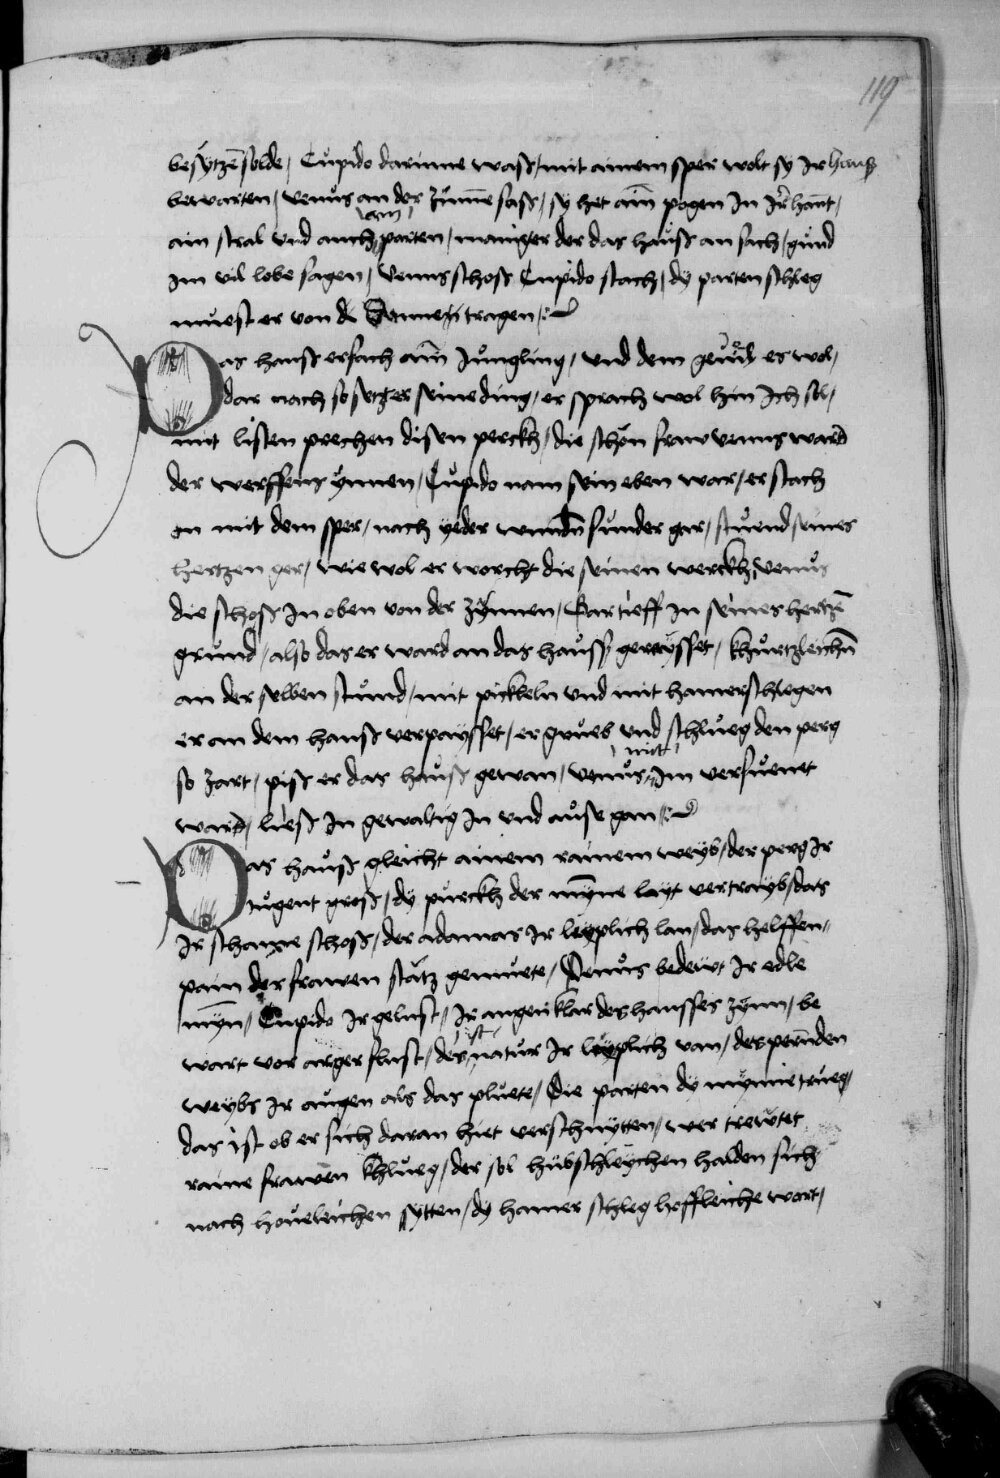 119
besytzen solde / Cupido darinne waß / mit ainem sper wolt sy Ir hauß
bewarten / venus an der Zinne saß / sy het ain pogen In Ir hant /
ain
ain stral vnd auch parten / maniger der das hauß an sach / gund
Im vil lobe sagen / venus schoß Cupido stach / dy parten schleg
muest er von di tragen
Das hauß ersach ain Jungling / vnd dem geviel es wol /
dar nach so setzt er seine ding / er sprach wol hin Ich sol /
mit listen prechen disen perckh / die schön fraw venus ward
der werffens ynnen / Cupido nam sein eben war / er stach
in mit dem sper / nach yeder wunden sunder gar / stuend seines
hertzen ger / wie wol er worcht die seinen werckh venus
die schoß In oben von der zynnen / Gar tieff In seines hertzen
grund / also das er ward an das hauß geraysset / khurtzleichen
an der selben stund / mit pickheln vnd mit hamerschlegen
er an dem hauß verpaysset / er grueb vnd schlueg den perg
mit
so zart / piß er das hauß gewan / venus Im versuenet
ward / ließ In gewaltig In vnd auße gan
Das hauß gleicht ainem rainem weyb / der perg Ir
tugent groß / dy purckh der mynne layt vertreyb / das
Ir schanze schoß / der adamas Ir leyplich lan / das helffen
pain der frawen stätz gemuete / Venus bedeut Ir edle
myn / Cupido Ir gelust / Ir augen klar des hausses zynn / be
wart vor arger flust / des natur Ir leyplich van / des pernden
ist
weybs Ir augen als das pluete / Die parten dy mynne trueg /
das ist ob er sich daran hiet verschnytten / wer trewtet
raine frawen khlueg / der sol hübschleychen halden sich
nach houeleichen sytten / dy hamer schleg hoffleiche wort /